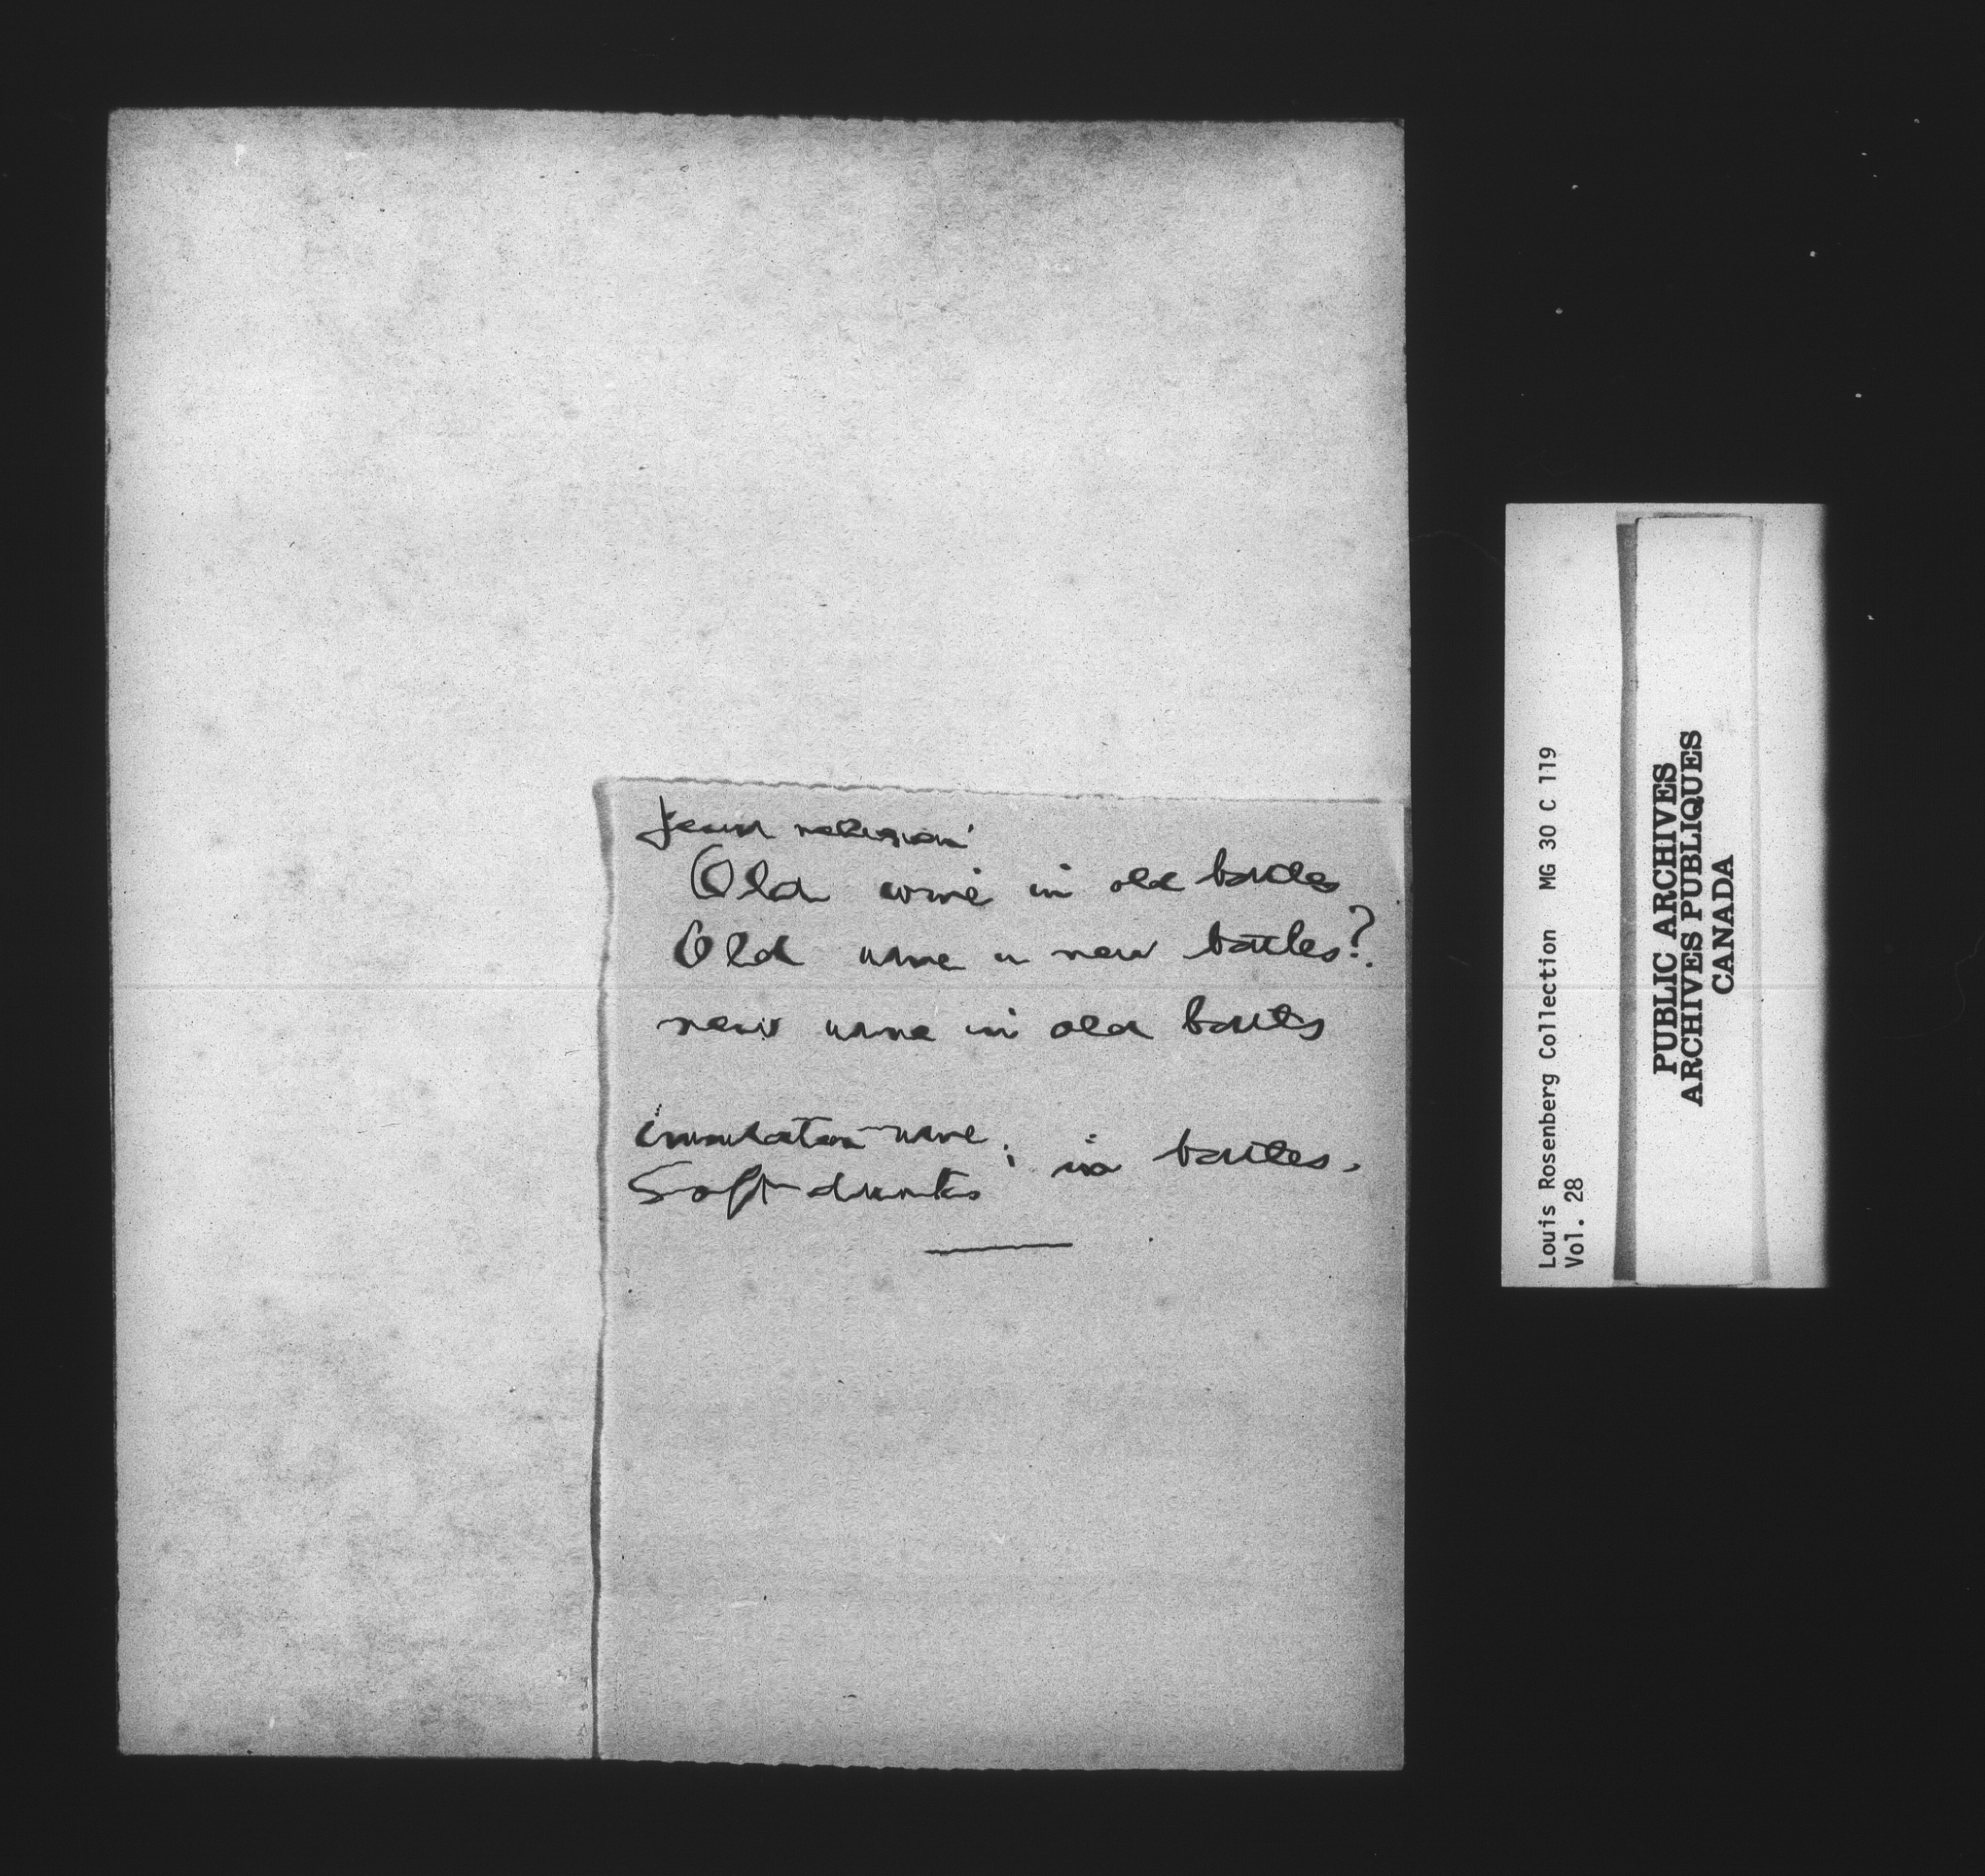 Jewish religion
Old wine in old bottles
Old wine in new bottles?
new wine in old bottles
imitation wine,
Soft drinks ; in bottles.
Louis Rosenberg Collection MG 30 C 119
Vol. 28
PUBLIC ARCHIVES
ARCHIVES PUBLIQUES
CANADA